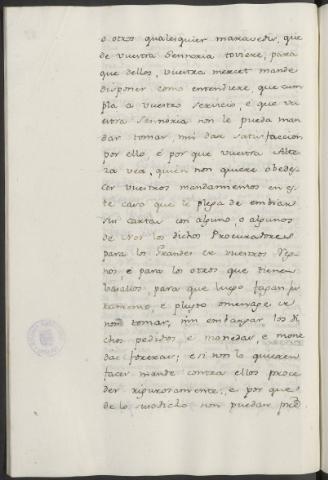 o otros qualesquier maravedis, que
de vuestra Sennoria toviere, para
que dellos, vuestra mercet mande
disponer como entendiere, que cum
pla a vuestro servicio, e que vu
estra Sennoria non le pueda man
dar tomar, nin dar satisfaccion
por ello, e por que vuestra Alte
za vea, quien non quiere obedes
cer vuestros mandamientos en es
te caso que le plega de embiar
su carta con alguno, o algunos
de Nos los dichos Procuradores
para los Grandes de vuestros Reg
nos, e para los otros que tienen
vasallos, para que luego fagan ju
ramento, e pleyto omenage de
non tomar, nin embargar los di
chos pedidos e monedas, e mone
da forera; e si non lo quisieren
facer mande contra ellos proce
der rigurosamente, e por que
de lo susdicho non puedan